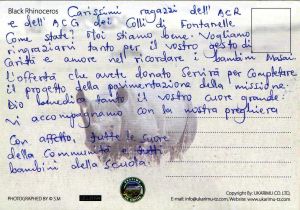 Black Rhinoceros
Carissimi ragazzi dell'ACR
e dell'ACG dei Colli di Fontanelle
Come state? Noi stiamo bene. Vogliamo
ringraziarvi tanto per il vostro gesto di
carità e amore nel ricordare i bambini Masai
L'offerta che avete donato servirà per completare
il progetto della pavimentazione della missione.
Dio benedica tanto il vostro cuore grande.
Vi accompagnamo con la nostra preghiera
Con affetto, tutte le suore
della Communità e tutti
bambini della scuola.
PHOTOGRAPHED BY © S.M
Copyright By: UKARIMU CO. LTD,
E-mail: info@ukarimu-tz.com, Website: www.ukarimu-tz.com